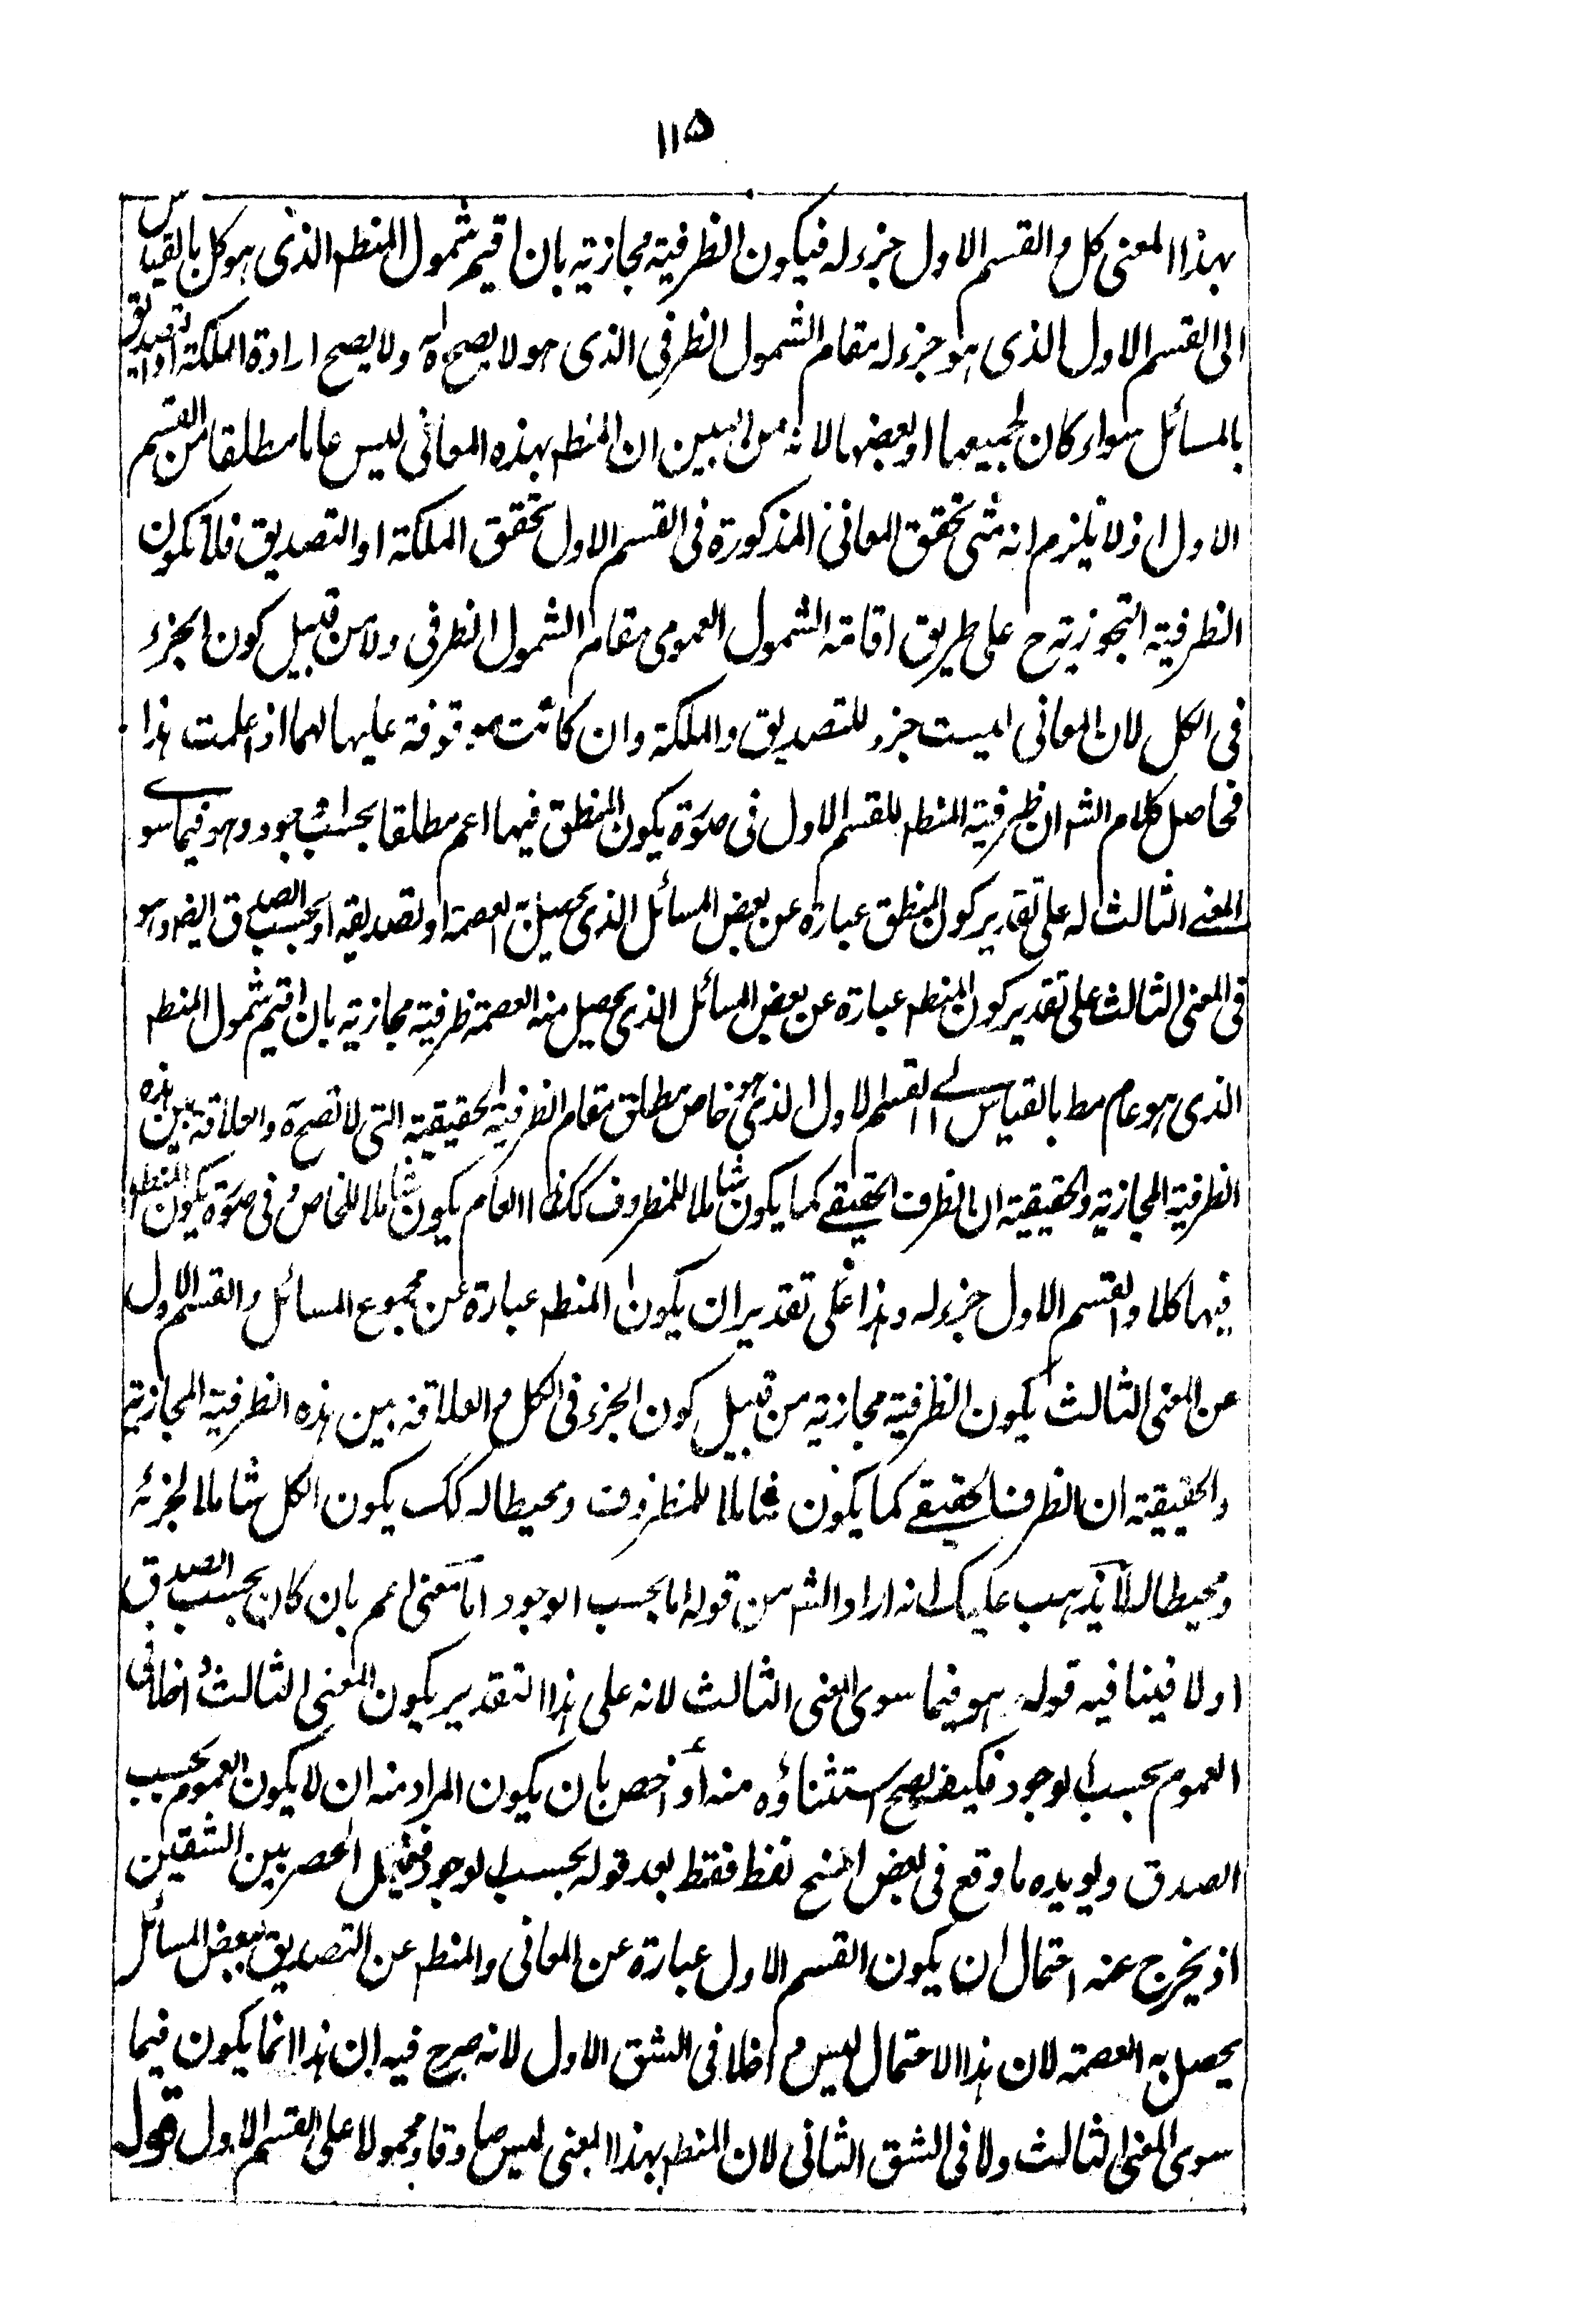 ١١٥
بهذا المعنى كل والقسم الاول جزء له فيكون الظرفية مجازية بان اقيم شمول المنط الذى هو كل بالقياس
الى القسم الاول الذى هو جزء له مقام الشمول الظرفى الذى هو لا يصح ه ولا يصح ارادة الملكة او التصديق
بالمسائل سواء كان لجميعها او بعضها لانه من البين ان المنط بهذه المعانى ليس عاما مطلقا من القسم
الاول اذ لا يلزم انه متى تحقق المعانى المذكورة فى القسم الاول تحقق الملكة او التصديق فلا يكون
الظرفية التجوزية ح على طريق اقامة الشمول العمومى مقام الشمول الظرفى ولا من قبيل كون الجزء
فى الكل لان المعانى ليست جزء للتصديق والملكة وان كانت موقوفة عليها لهما اذا علمت هذا
فحاصل كلام الشه ان ظرفية المنط للقسم الاول فى صورة يكون المنطق فيها اعم مطلقا بحسب الوجود وهو فيما سوے
المعنے الثالث له على تقدير كون المنطق عبارة عن بعض المسائل الذى يحصل به العصمة او تصديقه او بحسب الصدق ايضا وهو
فى المعنى الثالث على تقدير كون المنط عبارة عن بعض المسائل الذى يحصل منه العصمة ظرفية مجازية بان اقيم شمول المنط
الذى هو عام مط بالقياس الے القسم الاول الذى هو خاص مطلق مقام الظرفية الحقيقية التى لا تصح ه والعلاقة بين هذه
الظرفية المجازية والحقيقية ان الظرف الحقيقے كما يكون شاملا للمظروف كك العام يكون شاملا للخاص وفى صورة يكون المنطق
فيها كلا والقسم الاول جزء له وهذا على تقدير ان يكون المنط عبارة عن مجموع المسائل والقسم الاول
عن المعنى الثالث يكون الظرفية مجازية من قبيل كون الجزء فى الكل والعلاقة بين هذه الظرفية المجازية
والحقيقية ان الظرف الحقيقے كما يكون شاملا للمظروف ومحيطا له كك يكون الكل شاملا لجزئه
ومحيطا له لا يذهب عليك انه اراد الشه من قوله اما بحسب الوجود اما معنى اعم بان كان بحسب الصدق
اولا فينافيه قوله وهو فيما سوى المعنى الثالث لانه على هذا التقدير يكون المعنى الثالث داخلا فى
العموم بحسب الوجود فكيف يصح استثناؤه منه او اخص بان يكون المراد منه ان لا يكون العموم بحسب
الصدق ويويده ما وقع فى بعض النسخ لفظ فقط بعد قوله بحسب الوجود فيبطل الحصر بين الشقين
اذ يخرج عنه احتمال ان يكون القسم الاول عبارة عن المعانى والمنط عن التصديق ببعض المسائل
يحصل به العصمة لان هذا الاحتمال ليس داخلا فى الشق الاول لانه صرح فيه ان هذا انما يكون فيما
سوى المعنى الثالث ولا فى الشق الثانى لان المنط بهذا المعنى ليس صادقا ومحمولا على القسم الاول قول